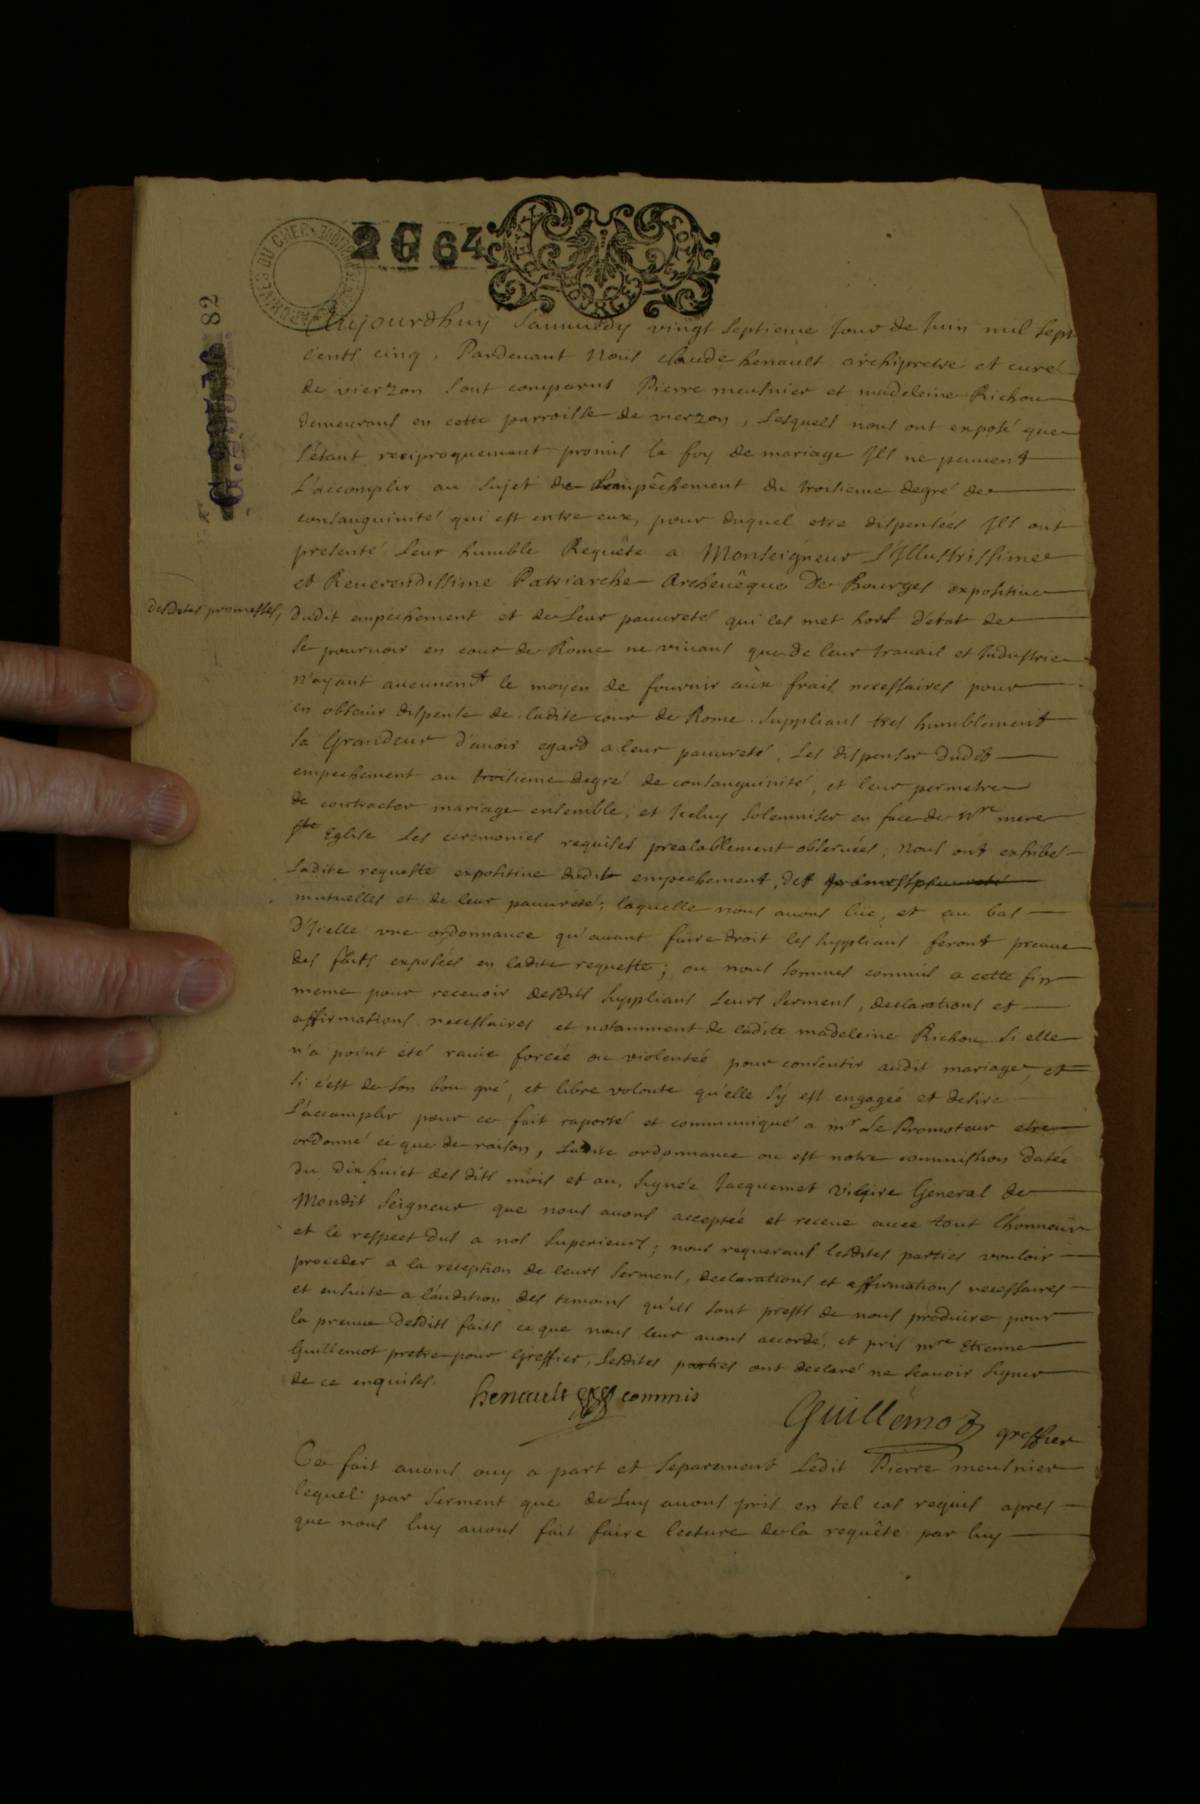 ARCHIVES DU CHER
2G 64
82
Aujourdhuy Samuedy vingt septieme Jour de Juin mil sept
cents cinq, Pardevant Nous claude henault archipretre et curé
de vierzon sont comparus Pierre meusnier et madeleine Richou
demeurans en cette parroisse de vierzon, Lesquels nous ont exposé que
s'étant reciproquement promis la foy de mariage Ils ne peuvent
L'accomplir au sujet de Lempêchement du troisieme degré de
consanguinité qui est entre eux, pour duquel etre dispensées Ils ont
presenté Leur humble Requête a Monseigneur L'Illustrissime
et Reverendissime Patriarche Archevêque De Bourges expositive
desdites promesses,
dudit empechement et de Leur pauvreté qui les met hors d'état de
se pourvoir en cour de Rome ne vivans que de leur travail et Industrie
n'ayant aucunemt le moyen de fournir aux frais necessaires pour
en obtenir dispense de ladite cour de Rome. Supplians tres humblement
Sa Grandeur d'avoir egard a leur pauvreté, Les dispenser dudit
empechement au troisieme degré de consanguinité, et leur permetre
de contracter mariage ensemble, et Iceluy solemniser en face de Nre mere
Ste Eglise Les ceremonies requises prealablement observées; Nous ont exhibé
Ladite requeste expositive dudit empechement, det
mutuelles et de leur pauvreté; laquelle nous avons lüe, et au bas
D'Icelle une ordonnance qu'avant faire droit les supplians feront preuve
des faits exposées en ladite requeste; ou nous sommes commis a cette fin
meme pour recevoir desdits Supplians Leurs serment, declarations et
affirmations necessaires et notamment de ladite madeleine Richou Si elle
n'a point eté ravie forcée ou violentée pour consentir audit mariage, et
Si c'est de son bon gré, et libre volonte qu'elle s'y est engageé et desire
L'accomplir pour ce fait raporté et communiqué a mr Le Promoteur etre
ordonné ce que de raison, Ladite ordonnance ou est notre commission datée
du dix huict desdits mois et an, Signée Jacquemet vicaire General de
Mondit Seigneur que nous avons acceptée et receue avec tout l'honneur
et le respect dus a nos Superieurs; nous requerans lesdites parties vouloir
proceder a la reception de leurs serment, declarations et affirmations necessaires
et ensuite a l'audition des temoins qu'ils sont prests de nous produire pour
la preuve desdits faits ce que nous leur avons accordé, et pris mre Etienne
Guillemot pretre pour Greffier, Lesdites parties ont declaré ne sçavoir signer
de ce enquises.
henault commis
Guillemot greffier
Ce fait avons ouy a part et separement Ledit Pierre meusnier
lequel par serment que de Luy avons pris en tel cas requis apres
que nous luy avons fait faire lecture de la requête par luy